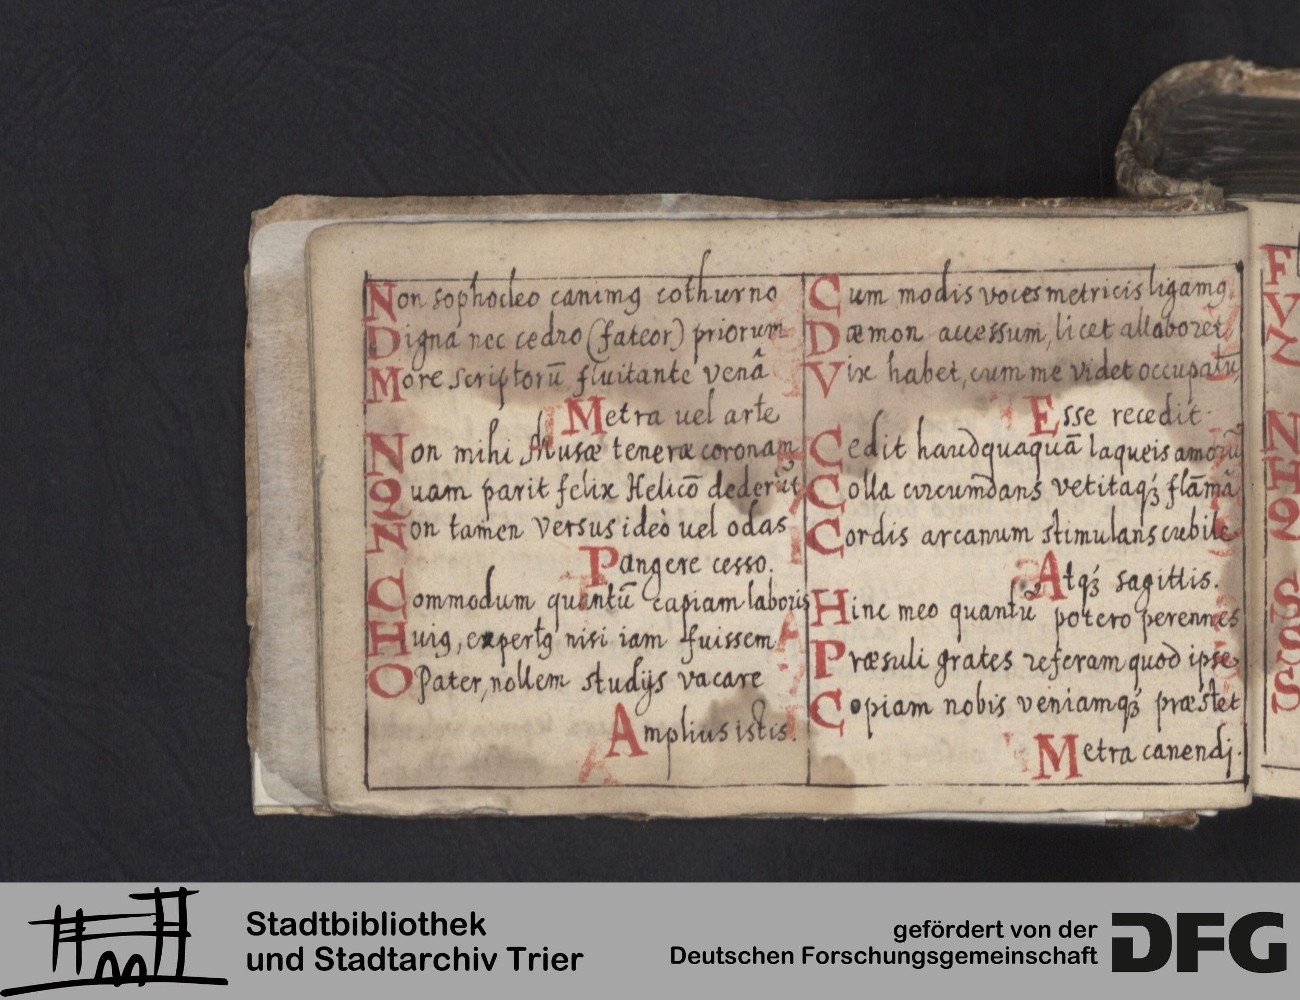 Non sophocleo canimꝰ cothurno
Digna nec cedro (fateor) priorum
More scriptorū fluitante venâ
Metra uel arte
Non mihi Musæ teneræ coronam
Quam parit felix Helicō dederūt
Non tamen versus ideò uel odas
Pangere cesso.
Commodum quantū capiam laboris
Huiꝰ, expertꝰ nisi iam fuissem
O Pater, nollem studijs vacare
Amplius istis.
Cum modis voces metricis ligamꝰ
Dæmon accessum, licet allaboret
Vix habet, cum me videt occupatū
Esse recedit.
Cedit haudquaquā laqueis amorū
Colla circumdans vetitaqꝫ flāmā
Cordis arcanum stimulans cubile
Atqꝫ sagittis.
Hinc meo quantū potero perennes
Præsuli grates referam quod ipse
Copiam nobis veniamqꝫ præstet
Metra canendj.
F
V
Z
N
H
Q
S
S
S
Stadtbibliothek
und Stadtarchiv Trier
gefördert von der
Deutschen Forschungsgemeinschaft
DFG